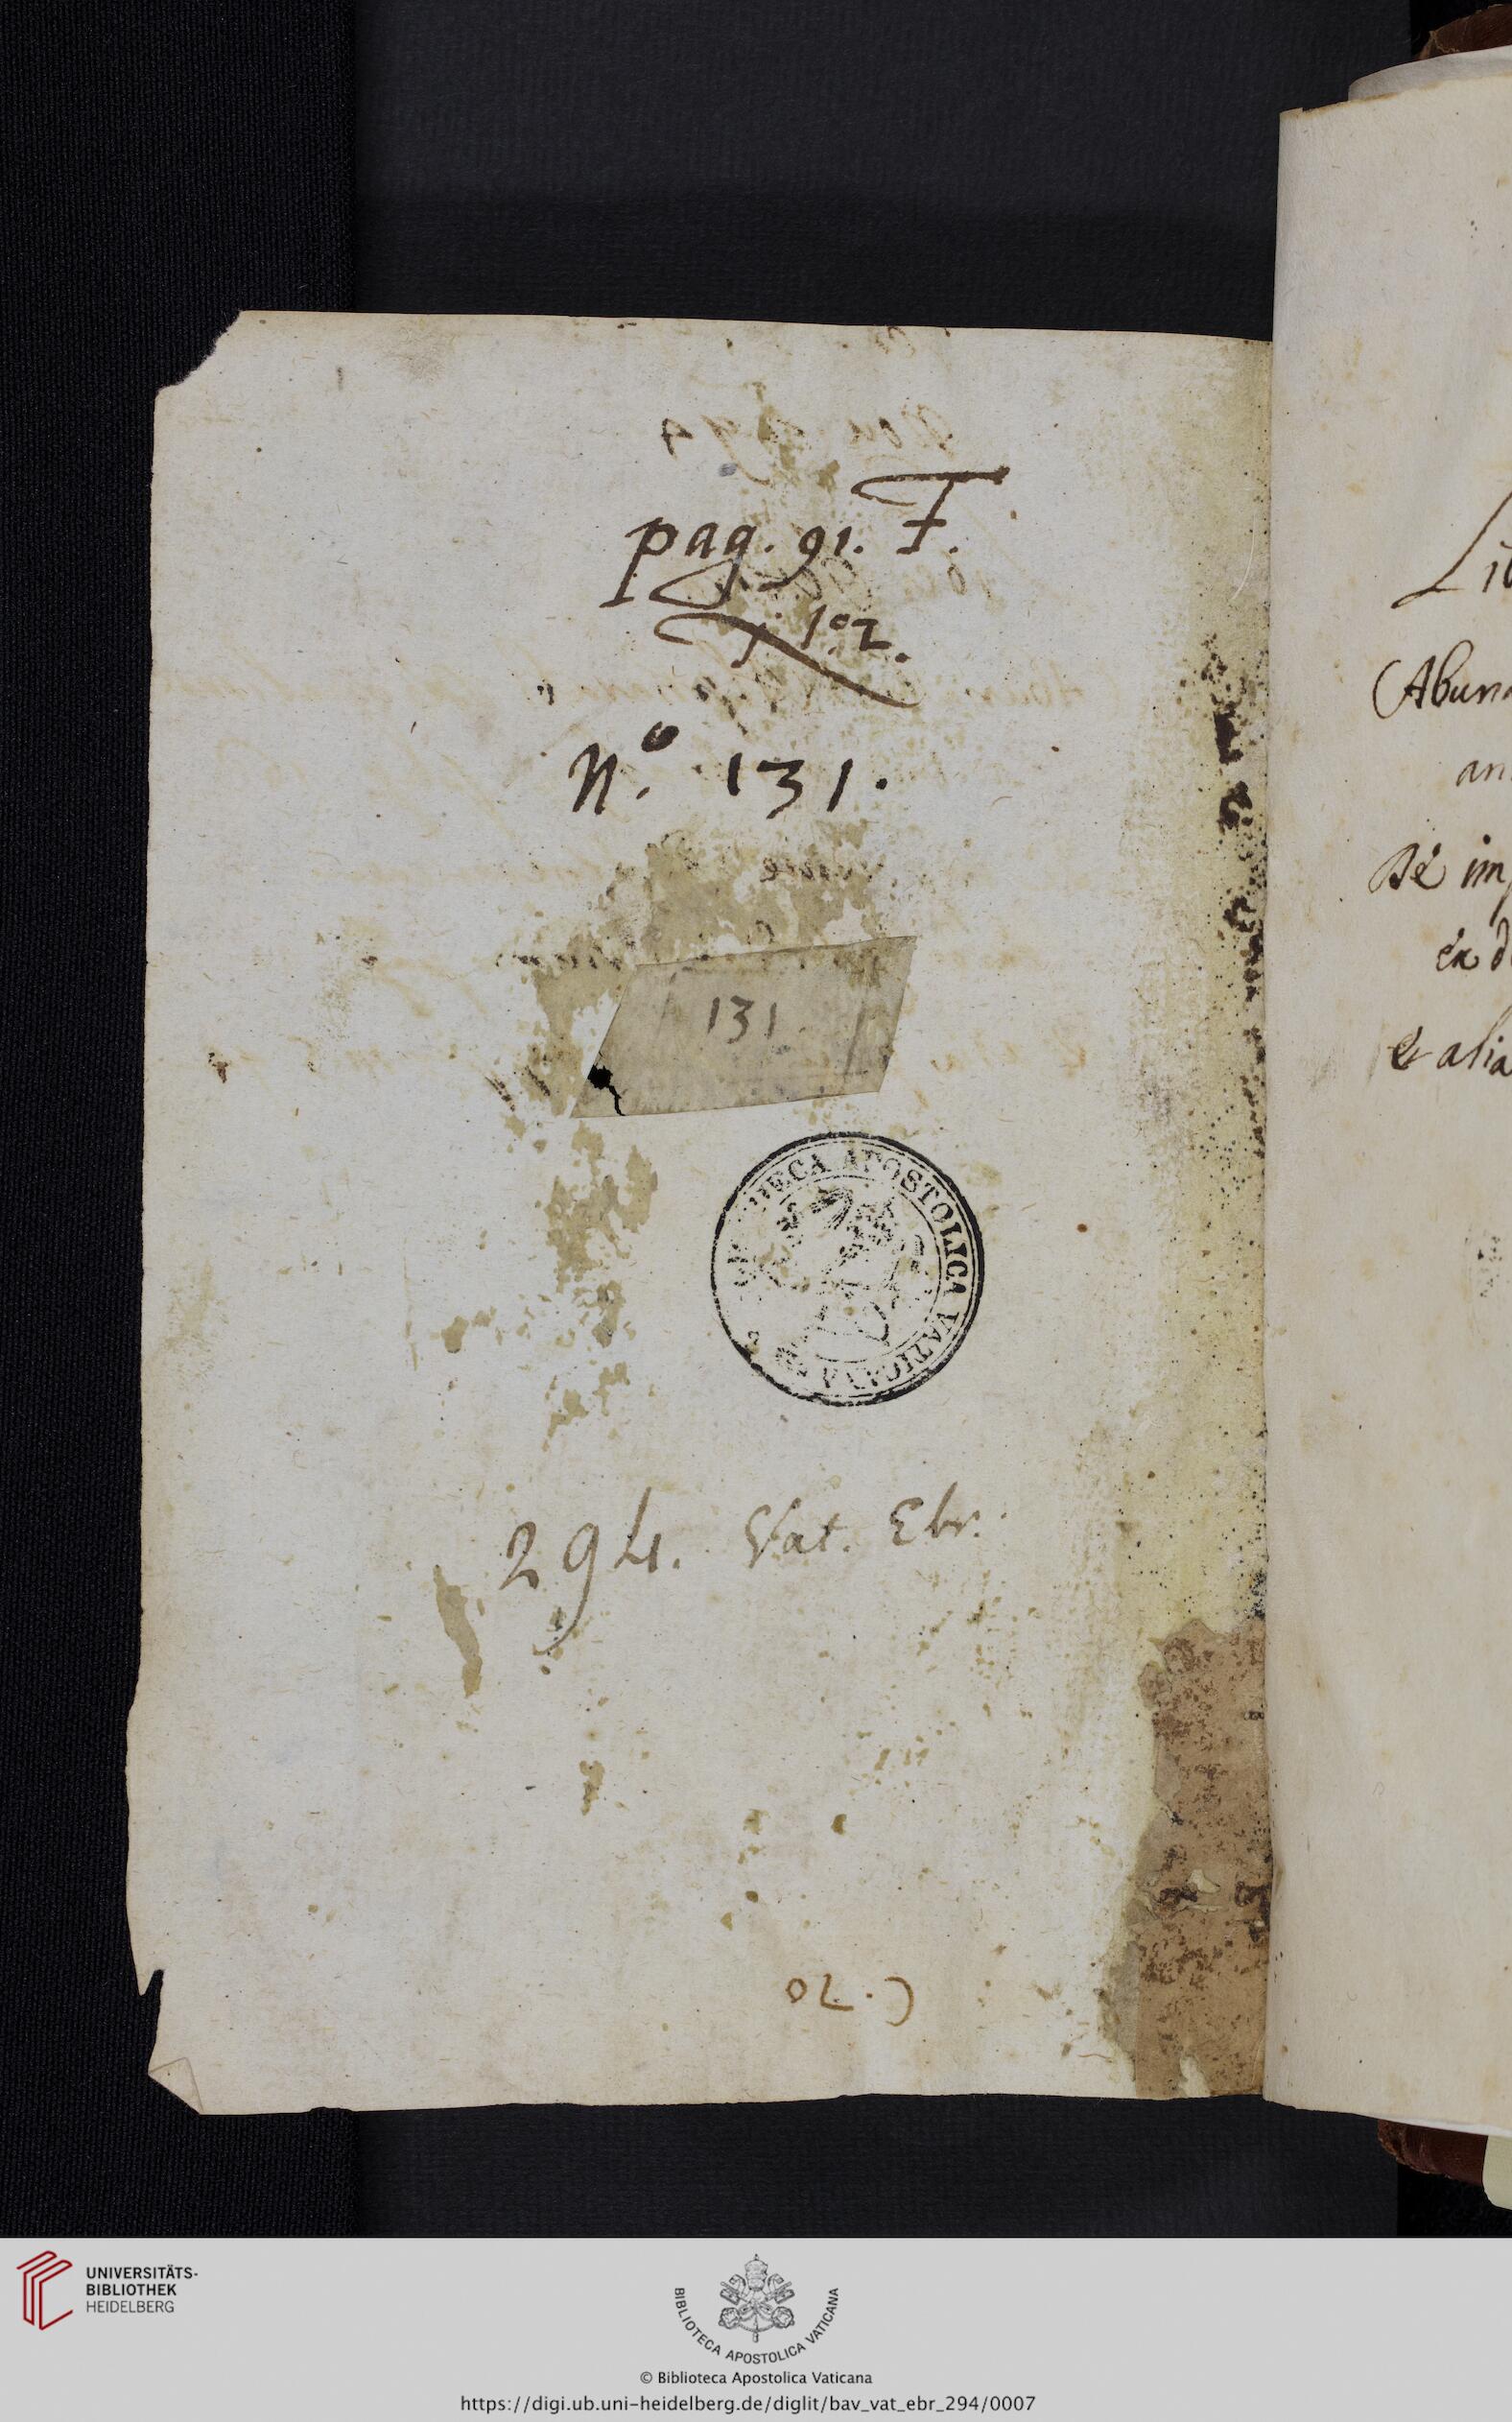 pag. 91. F.
102.
N.º 131.
131.
APOSTOLICA VATICANA
294. Vat. Ebr.
C. 70
Abun
an
De im
ex d
& alia
UNIVERSITÄTS-
BIBLIOTHEK
HEIDELBERG
BIBLIOTECA APOSTOLICA VATICANA
© Biblioteca Apostolica Vaticana
https://digi.ub.uni-heidelberg.de/diglit/bav_vat_ebr_294/0007